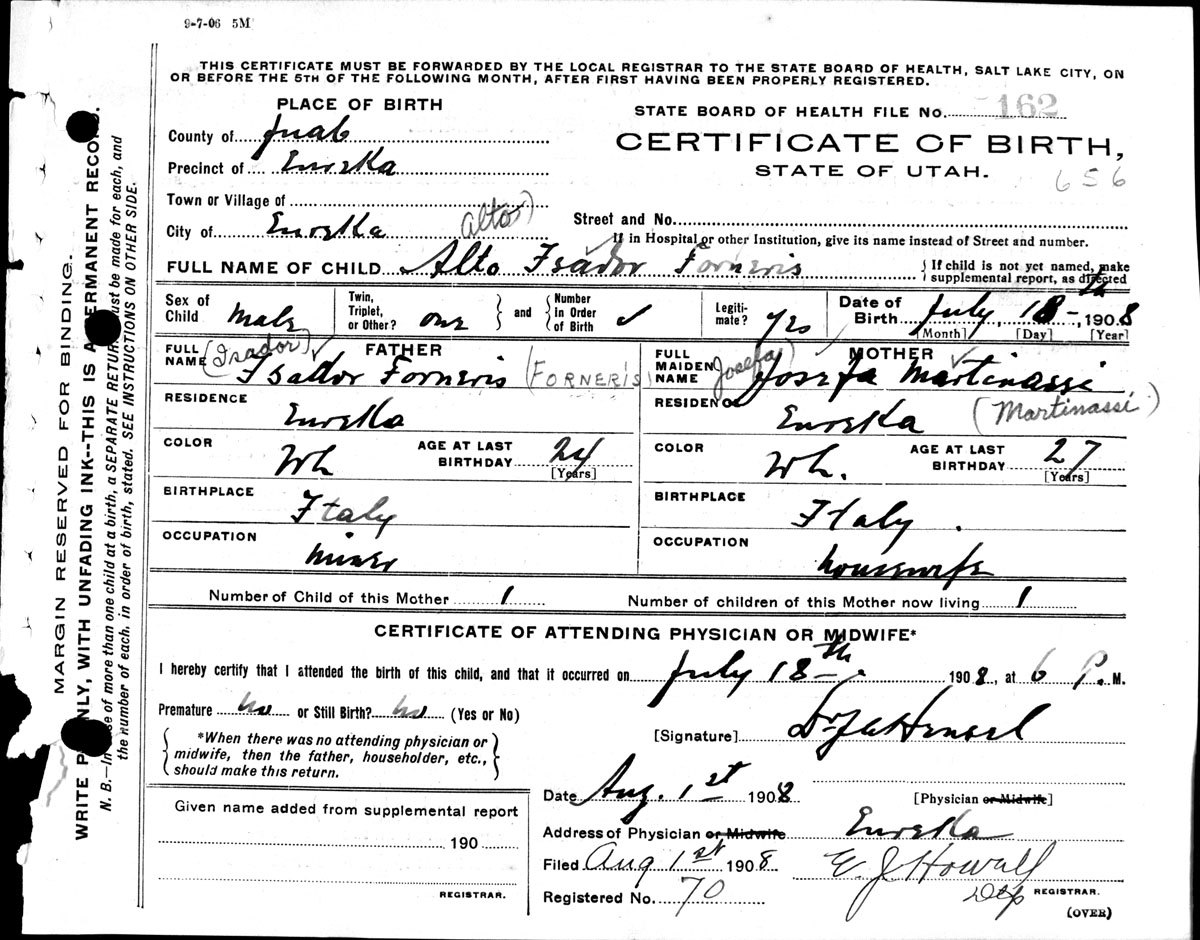 9-7-06 5M
THIS CERTIFICATE MUST BE FORWARDED BY THE LOCAL REGISTRAR TO THE STATE BOARD OF HEALTH, SALT LAKE CITY, ON
OR BEFORE THE 5TH OF THE FOLLOWING MONTH, AFTER FIRST HAVING BEEN PROPERLY REGISTERED.
MARGIN RESERVED FOR BINDING.
WRITE PLAINLY, WITH UNFADING INK--THIS IS A PERMANENT RECORD.
N. B.—In case of more than one child at a birth, a SEPARATE RETURN must be made for each, and
the number of each, in order of birth, stated. SEE INSTRUCTIONS ON OTHER SIDE.
PLACE OF BIRTH
County of Juab
Precinct of Eureka
Town or Village of
City of Eureka (Alto)
STATE BOARD OF HEALTH FILE No. 162
CERTIFICATE OF BIRTH,
STATE OF UTAH.
656
Street and No.
If in Hospital or other Institution, give its name instead of Street and number.
FULL NAME OF CHILD Alto Isador Forneris
If child is not yet named, make
supplemental report, as directed
Sex of Child Male
Twin, Triplet, or Other? one
and
Number in Order of Birth ✓
Legiti- mate? yes
Date of Birth July, 18th, 1908
[Month] [Day] [Year]
FATHER
FULL NAME (Isador) Isador Forneris (FORNERIS)
RESIDENCE
Eureka
COLOR Wh
AGE AT LAST BIRTHDAY 24
[Years]
BIRTHPLACE
Italy
OCCUPATION
miner
MOTHER
FULL MAIDEN NAME (Josefa) Josefa Martinassi
RESIDENCE
Eureka (Martinassi)
COLOR Wh.
AGE AT LAST BIRTHDAY 27
[Years]
BIRTHPLACE
Italy.
OCCUPATION
housewife
Number of Child of this Mother 1
Number of children of this Mother now living 1
CERTIFICATE OF ATTENDING PHYSICIAN OR MIDWIFE*
I hereby certify that I attended the birth of this child, and that it occurred on July 18th, 1908, at 6 P. M.
Premature no or Still Birth? no (Yes or No)
*When there was no attending physician or
midwife, then the father, householder, etc.,
should make this return.
[Signature] Dr
Date Aug. 1st 1908
[Physician or Midwife]
Address of Physician or Midwife Eureka
Filed Aug 1st 1908 E. J. Howall
Dep REGISTRAR.
Registered No. 70
(OVER)
Given name added from supplemental report
190
REGISTRAR.